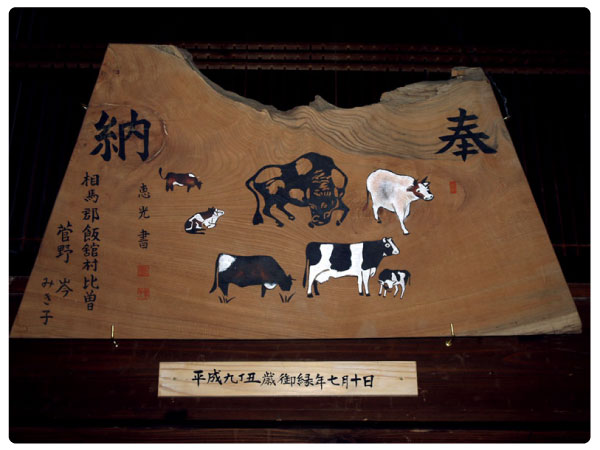 奉
納
恵光書
相馬郡飯舘村比曽
菅野岑
みき子
平成九丁丑歳御縁年七月十日